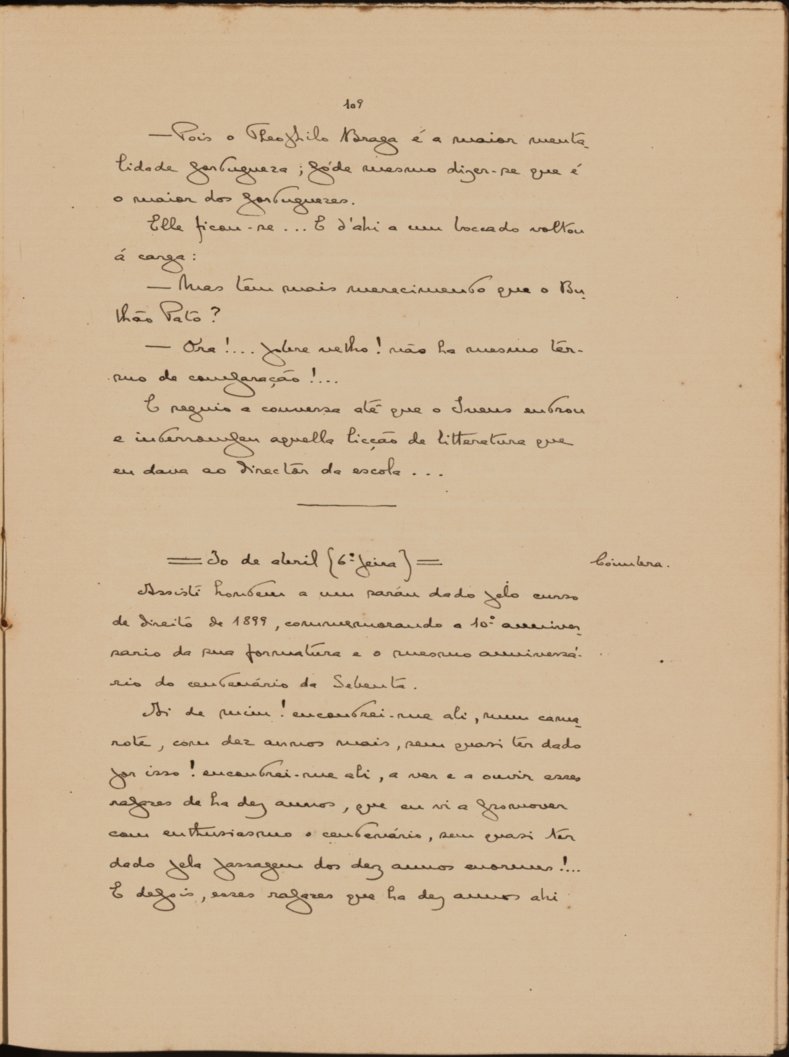 109
— Pois o Theophilo Braga é a maior menta-
lidade portugueza; póde mesmo dizer-se que é
o maior dos portuguezes.
Elle ficou-se... E d'ahi a um boccado voltou
á carga:
— Mas tem mais merecimento que o Bu-
lhão Pato?
— Ora!... pobre velho! não ha mesmo têr-
mo de comparação!...
E seguio a conversa até que o Ivens entrou
e interrompeu aquella licção de litteratura que
eu dava ao directôr da escola...
= 30 de abril (6.ª feira) =
Coimbra.
Assisti hontem a um saráu dado pelo curso
de direito de 1899, commemorando o 10.º anniver-
sario da sua formatura e o mesmo anniversá-
rio do centenário da Sebenta.
Ai de mim! encontrei-me ali, num cama-
rote, com dez annos mais, sem quasi ter dado
por isso! encontrei-me ali, a ver e a ouvir esses
rapazes de ha dez annos, que eu vi a promover
com enthusiasmo o centenário, sem quasi ter
dado pela passagem dos dez annos enormes!...
E depois, esses rapazes que ha dez annos ahi